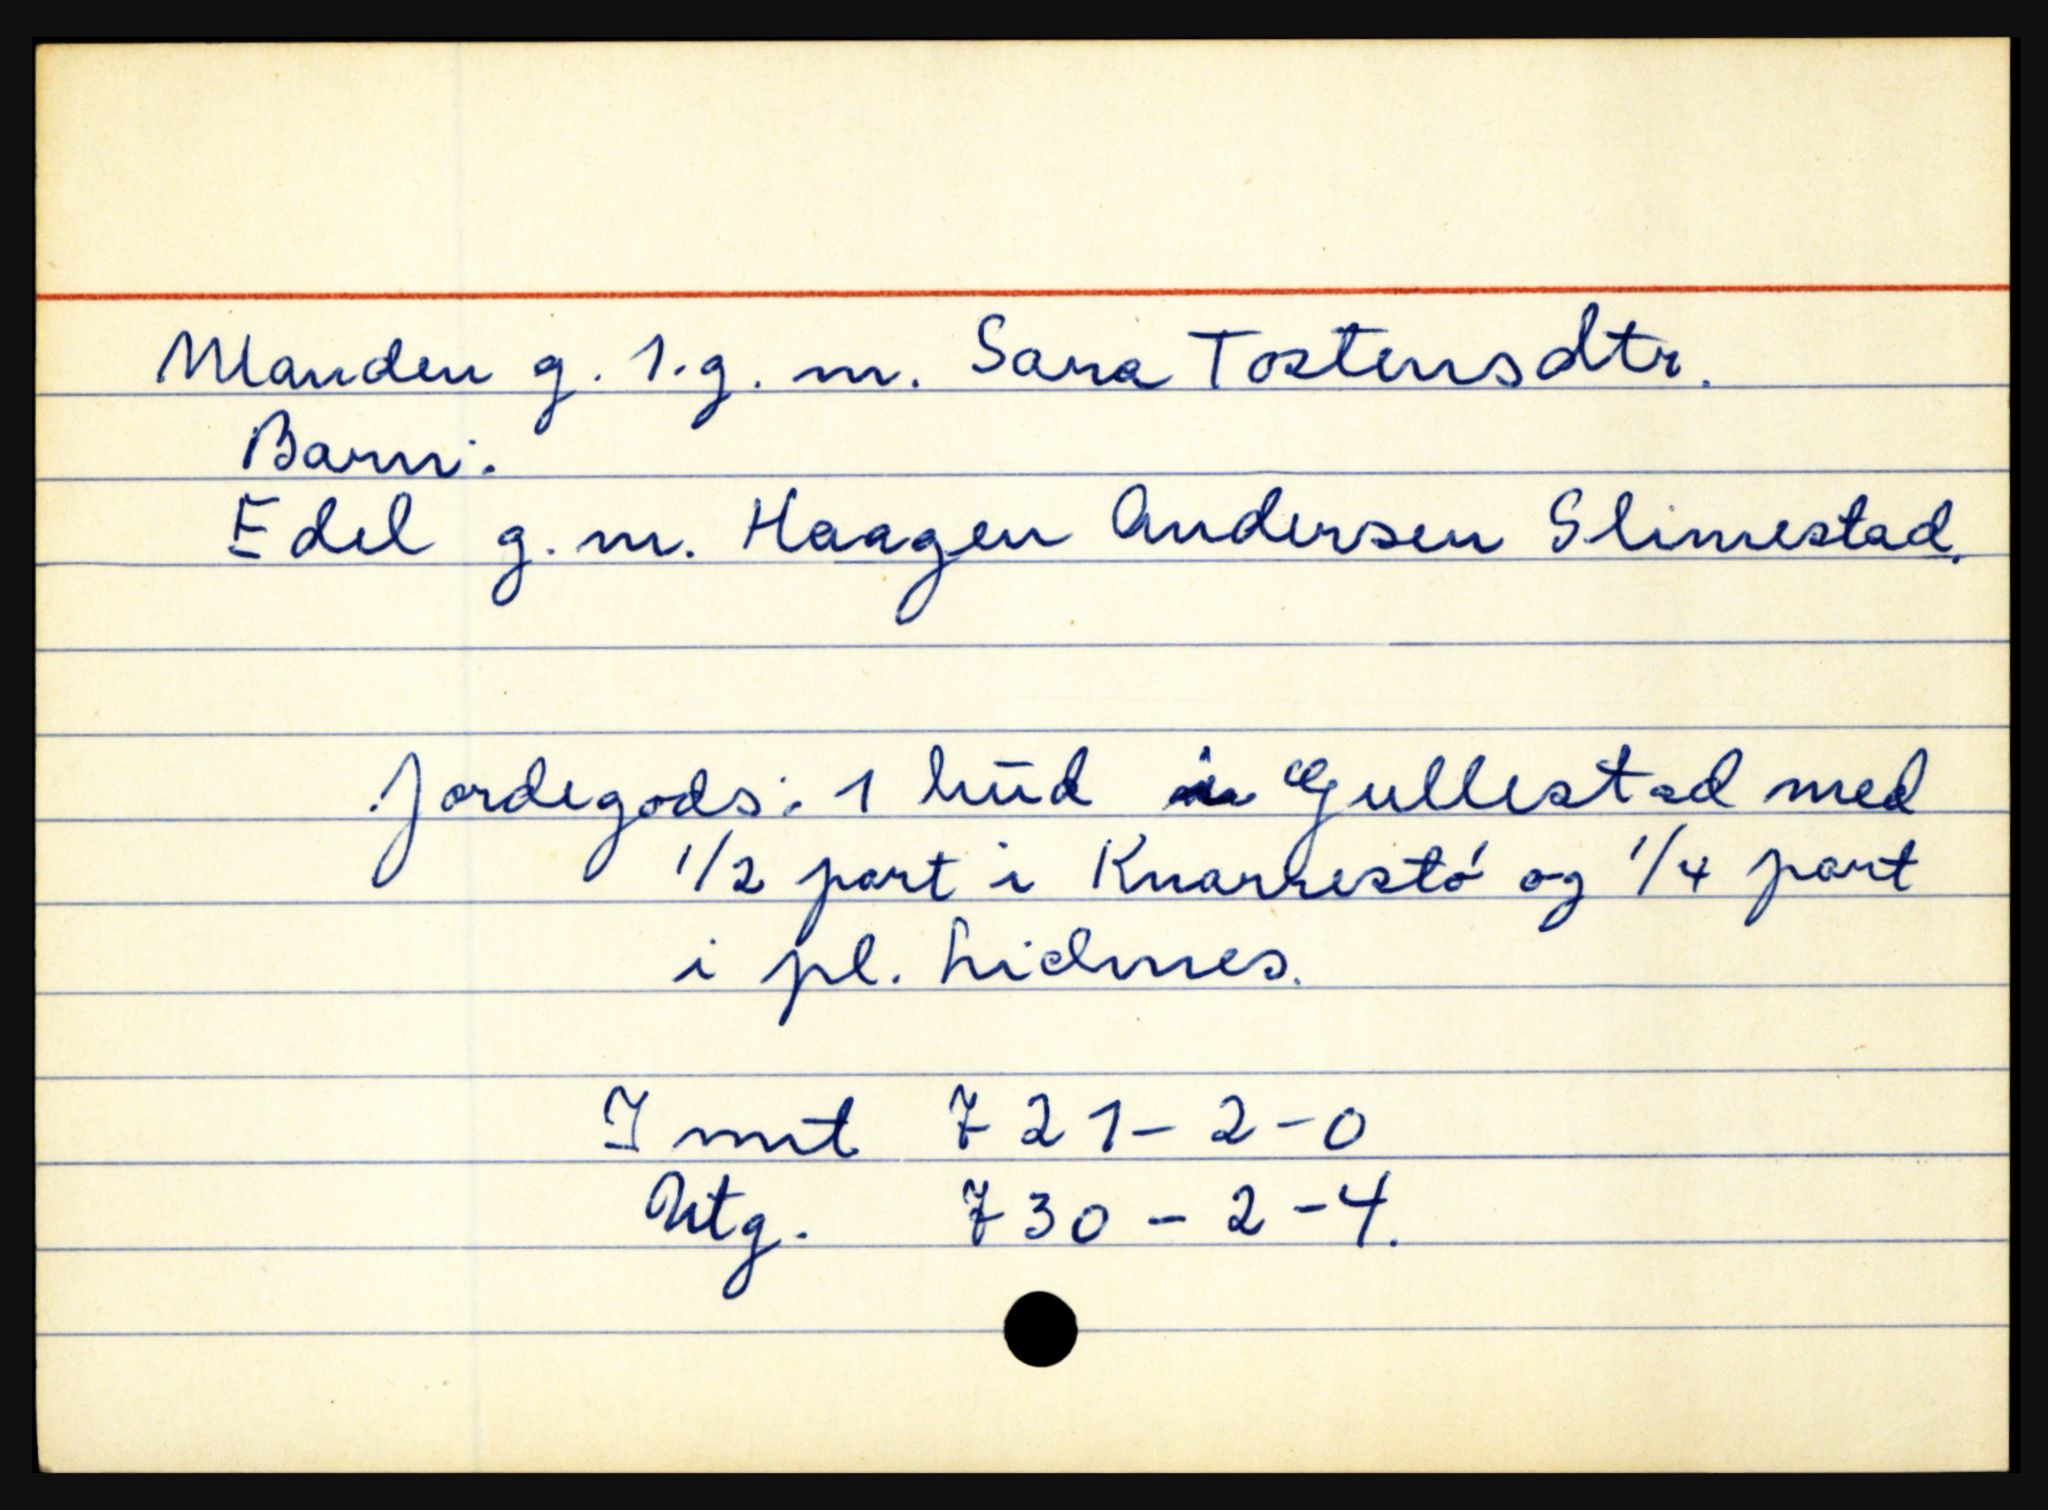 Manden g. 1.g. m. Sara Tostensdtr.
Barn:
Edel g. m. Haagen Andersen Slimestad.
Jordegods: 1 hud i Gullestad med
1/2 part i Knarrestø og 1/4 part
i pl. Lidnes.
Innt 721-2-0
Utg. 730-2-4.